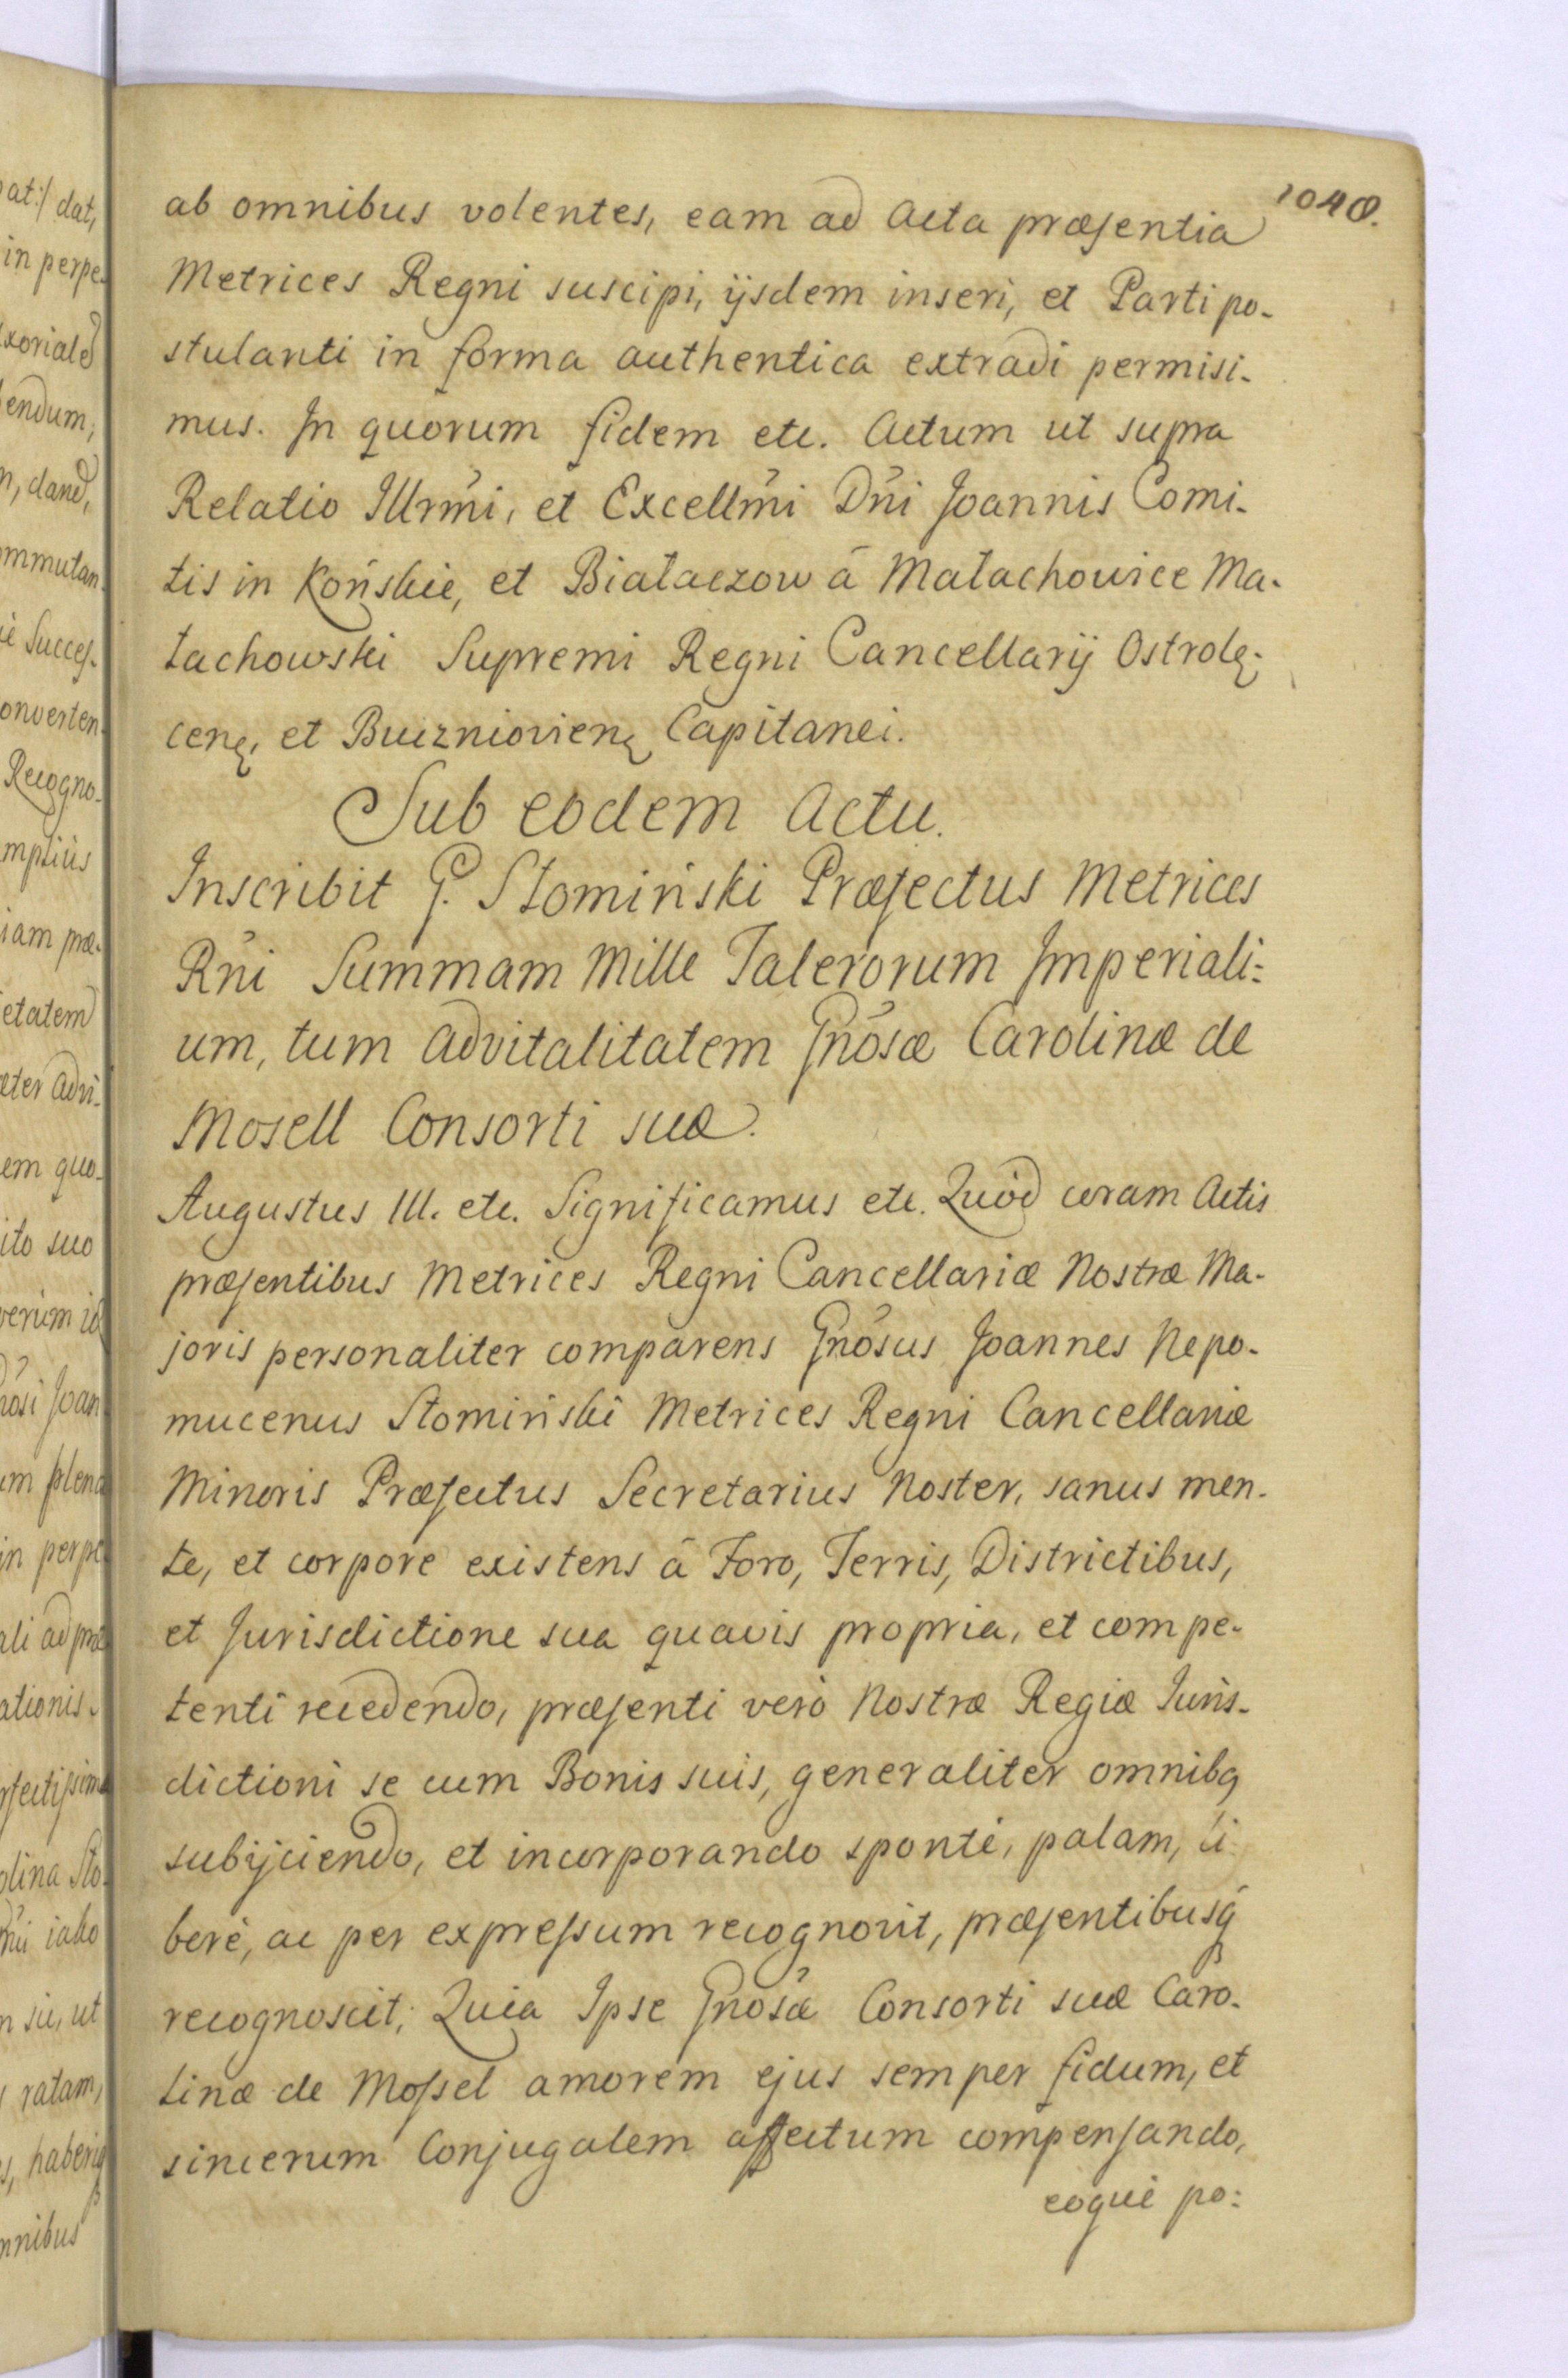 1040.
ab omnibus volentes, eam ad Acta præsentia
Metrices Regni suscipi, ijsdem inseri, et Parti po-
stulanti in forma authentica extradi permisi-
mus. In quorum fidem etc. Actum ut supra
Relatio Illrm̃i, et Excellm̃i Dñi Joannis Comi-
tis in Końskie, et Białaczow â Małachowice Ma-
łachowski Supremi Regni Cancellarij Ostrolę-
cenę, et Buizniovienę Capitanei.
Sub eodem Actu.
Inscribit G. Słomiński Præfectus Metrices
Rñi Summam Mille Talerorum Imperiali=
um, tum advitalitatem Gñosæ Carolinæ de
Mosell Consorti suæ.
Augustus III. etc. Significamus etc. Quòd coram Actis
præsentibus Metrices Regni Cancellariæ Nostræ Ma-
joris personaliter comparens Gñosus Joannes Nepo-
mucenus Słomiński Metrices Regni Cancellariæ
Minoris Præfectus Secretarius Noster, sanus men-
te, et corpore existens â Foro, Terris, Districtibus,
et Jurisdictione sua quavis propria, et compe-
tenti recedendo, præsenti verò Nostræ Regiæ Juris-
dictioni se cum Bonis suis, generaliter omnibq
subijciendo, et incorporando spontè, palam, li-
berè, ac per expressum recognovit, præsentibusq́
recognoscit; Quia Ipse Gñosæ Consorti suæ Caro-
linæ de Mossel amorem ejus semper fidum, et
sincerum Conjugalem affectum compensando,
eoque po: